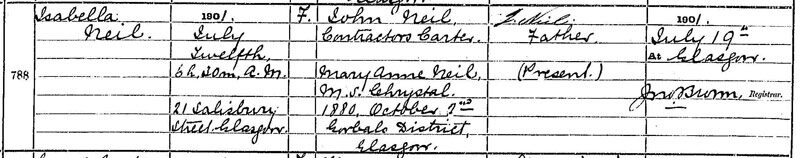 788
Isabella
Neil.
1901.
July
Twelfth,
21 Salisbury
Street, Glasgow.
F.
John Neil,
Contractors Carter.
Mary Anne Neil,
M.S. Chrystal.
1880, October
Gorbals District,
Glasgow.
Father.
(Present.)
1901.
July 19th
At Glasgow.
Jno Brown, Registrar.